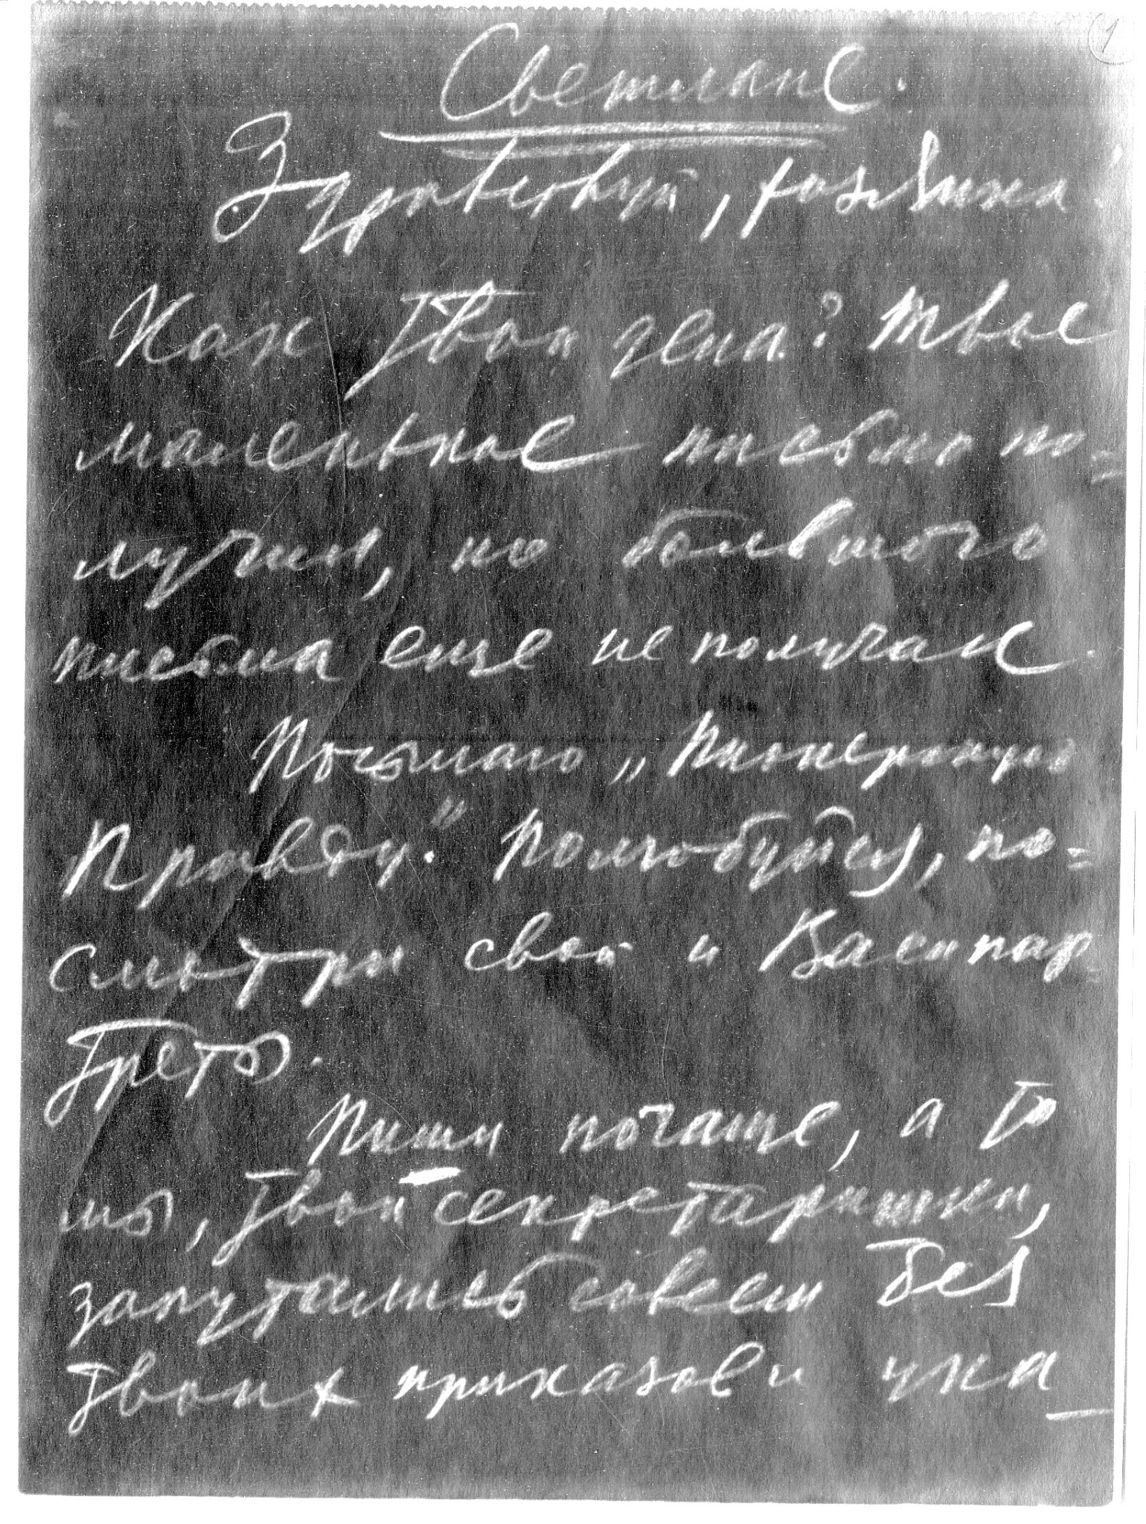 1
Светлане.
Здравствуй, хозяйка.
Как твои дела? Твое
маленькое письмо по=
лучил, но большого
письма еще не получал.
Посылаю „Пионерскую
Правду." Полюбуйся, по=
смотри свой и Васи пор-
треты.
Пиши почаще, а то
мы, твои секретаришки,
запутались совсем без
твоих приказов и ука_